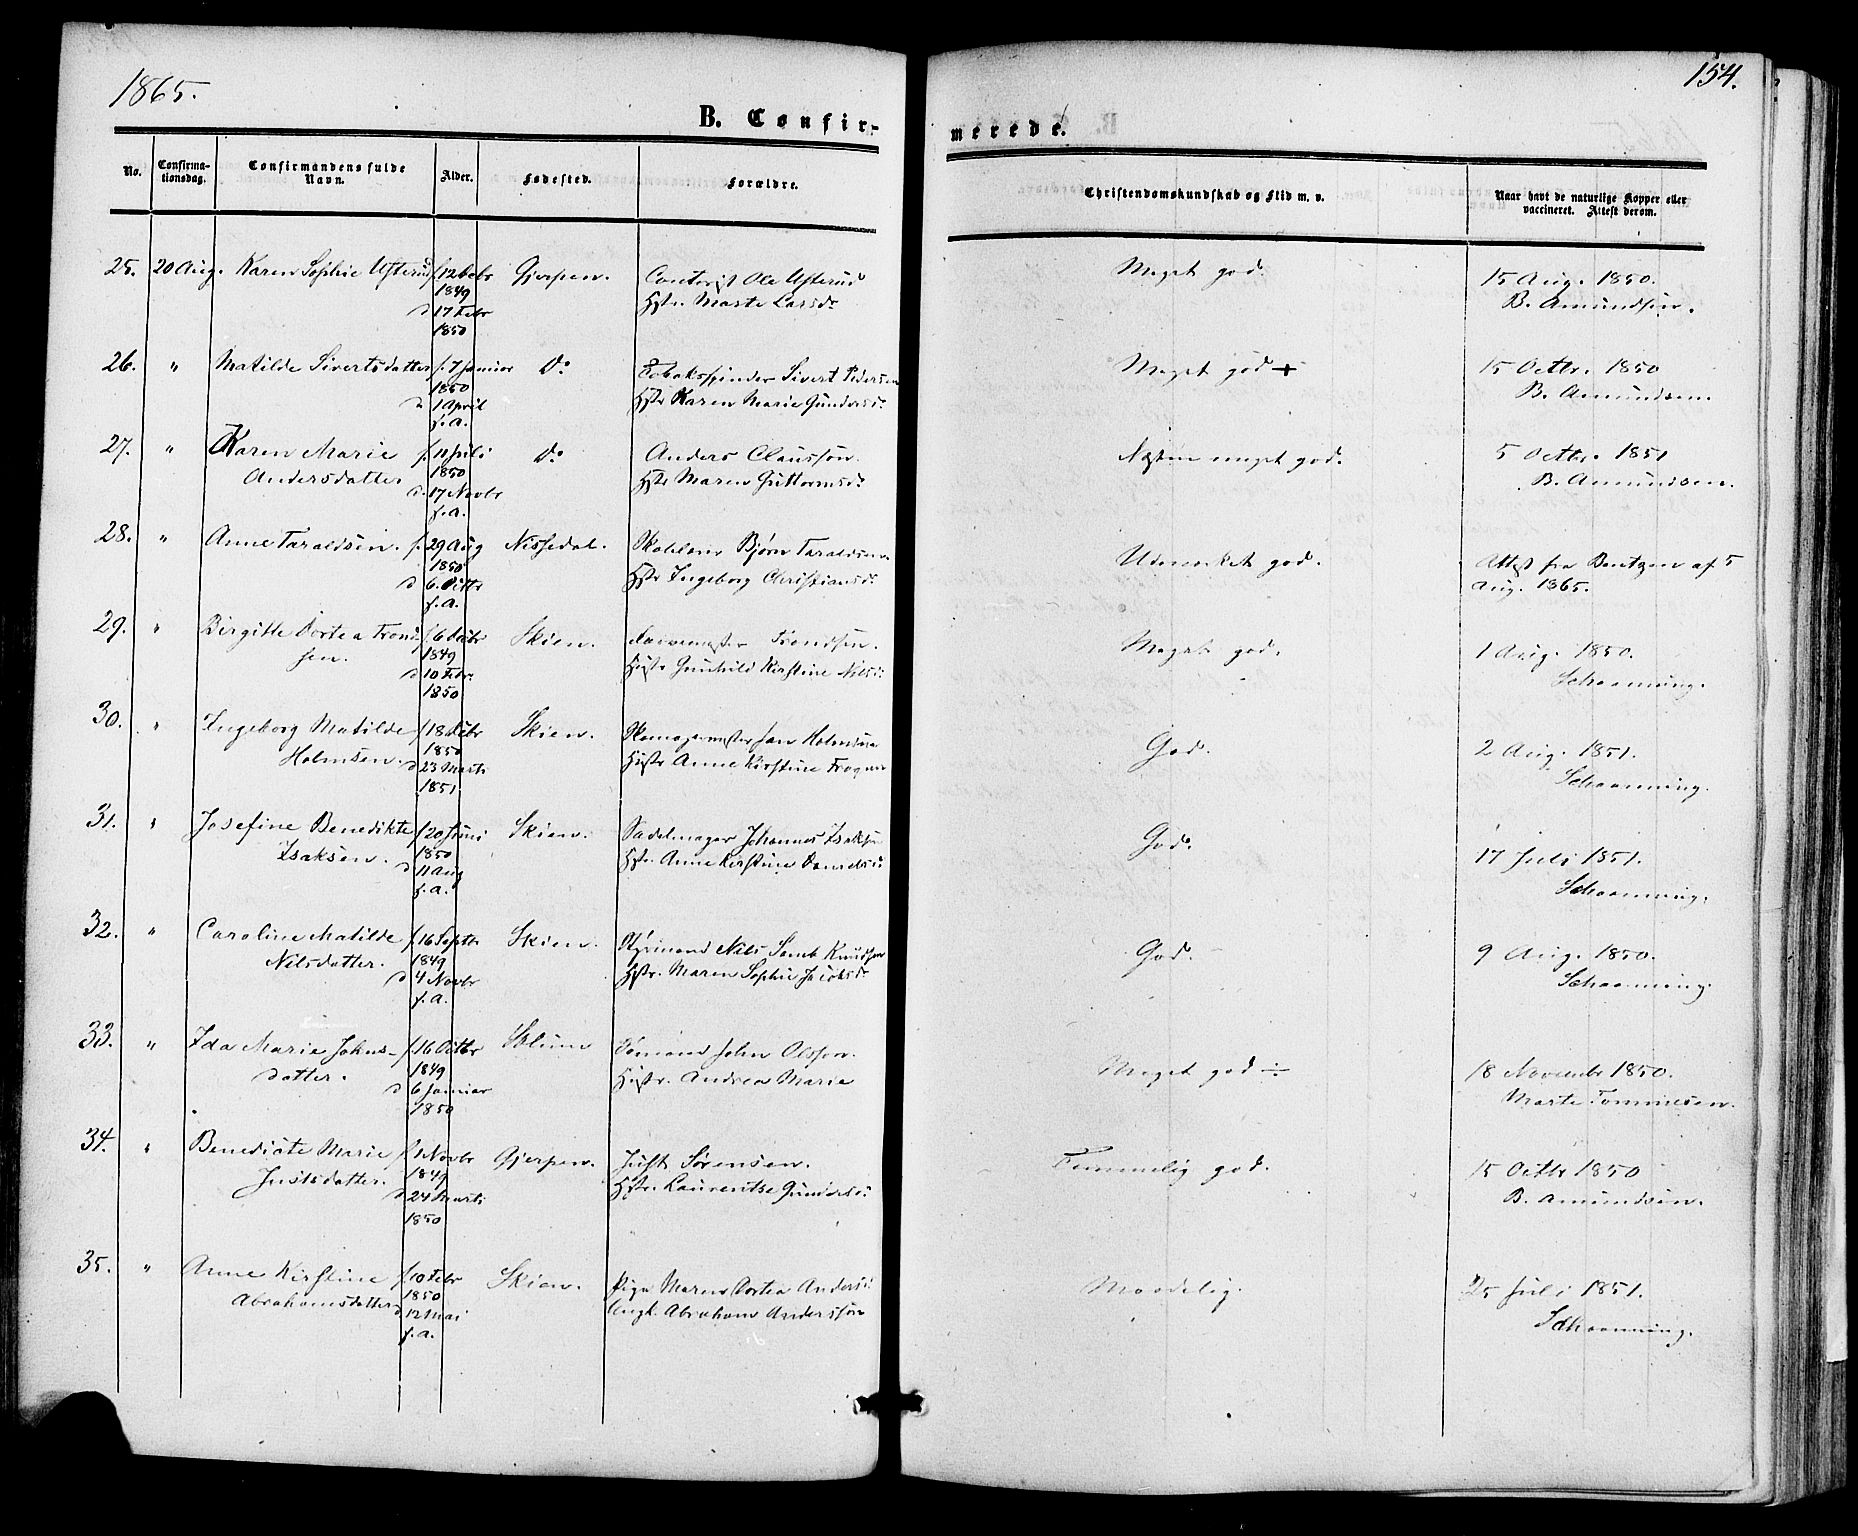 1865.
154.
B. Confir-
merede.
No.
Confirma-
tionsdag.
Confirmandens fulde
Navn.
Alder.
Fødested.
Forældre.
Christendomskundskab og Flid m. v.
Naar havt de naturlige Kopper eller
vaccineret. Attest derom.
25. 20 Aug. Karen Sophie Ufterud f. 12 Gjerpen. Contorist Ole Ufterud Meget god. 15 Aug. 1850.
1849 Hstr. Marte Larsd. B. Amundsen.
d 17 Febr
1850
26. " Matilde Sivertsdatter f. 7 Januar Do Tobakspinder Sivert Pedersen Meget god + 15 Octbr. 1850
1850 Hstr Karen Marie Gundersd. B. Amundsen.
d 1 April
f. a.
27. " Karen Marie f. 11 Juli Do Anders Claussøn. Næsten meget god. 5 Octbr. 1851
Andersdatter 1850 Hstr Maren Guttormsd. B. Amundsen.
d. 17 Novbr
f. a.
28. " Anne Taraldsen. f. 29 Aug Nissedal. Bjørn Taraldsen Udmerket god. Attest fra Bentzen af 5
1850 Hstr Ingeborg Christiansd. Aug. 1865.
d 6. Octbr
f. a.
29. " Birgitte Dortea Trond- f. 6 Skien. Farvemester Trondsen. Meget god. 1 Aug. 1850.
sen. 1849 Hustr Gunhild Kirstine Nilsd. Schaanning.
d 10 Febr.
1850
30. " Ingeborg Matilde f. 18 Skien. Skomagermester Jan Holmsen God. 2 Aug. 1851.
Holmsen. 1850 Hustr Anne Kirstine Schaanning.
d 23 Marts
1851
31. " Josefine Benedikte f. 20 Juni Skien. Sadelmager Johannes Isaksen God. 17 Juli 1851.
Isaksen. 1850 Hstr. Anne Kirstine Schaanning.
d 11 Aug
f. a.
32. " Caroline Matilde f. 16 Septbr Skien. Styrmand Nils Knudsen God. 9 Aug. 1850.
Nilsdatter. 1849 Hstr. Maren Sophie Jacobsd. Schaanning.
d 4 Novbr
f. a.
33. " Ida Marie Johns- f. 16 Octbr Solum Sømand John Olsson. Meget god ÷ 18 Novembr 1850.
datter. 1849 Hustr. Andrea Marie Marte Tommesen.
d 6 Januar
1850
34. " Benedicte Marie f. 1 Novbr Gjerpen. Just Sørensen. Temmelig god. 15 Octbr 1850
Justsdatter. 1849 Hstr. Laurentse Gundersd. B. Amundsen.
d 24 Marts
1850
35. " Anne Kirstine f. 10 Febr Skien. Pige Maren Dortea Andersd. Maadelig. 25 Juli 1851.
Abrahamsdatter 1850 Ungk. Abraham Anderssøn Schaanning.
d 12 Mai
f. a.